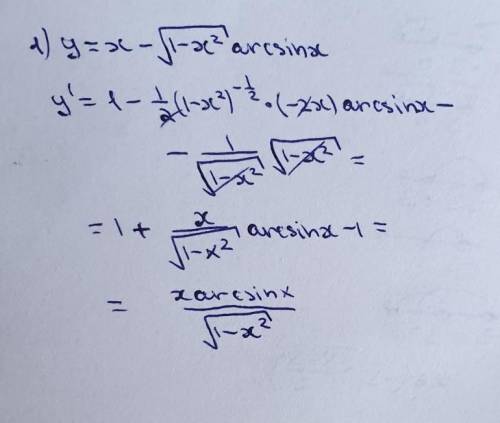 1) y = x - √(1-x²) arcsinx
y' = 1 - 1/2 (1-x²)^(-1/2) · (-2x) arcsinx -
- 1/√(1-x²) √(1-x²) =
= 1 + x/√(1-x²) arcsinx - 1 =
= xarcsinx/√(1-x²)